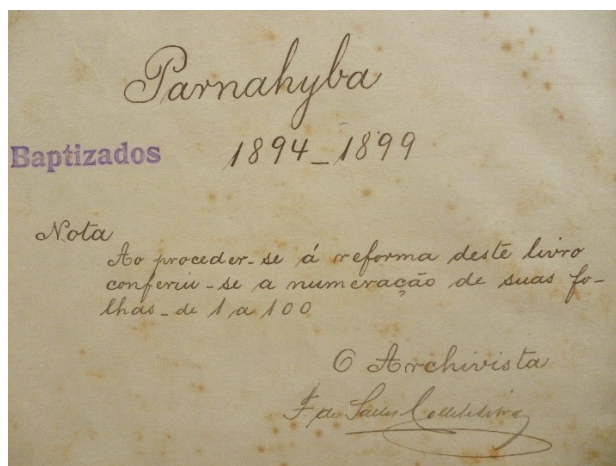 Parnahyba
Baptizados 1894_1899
Nota
Ao proceder-se á reforma deste livro
conferiu-se a numeração de suas fo-
lhas_de 1 a 100
O Archivista
F. de Salles Collet e Silva